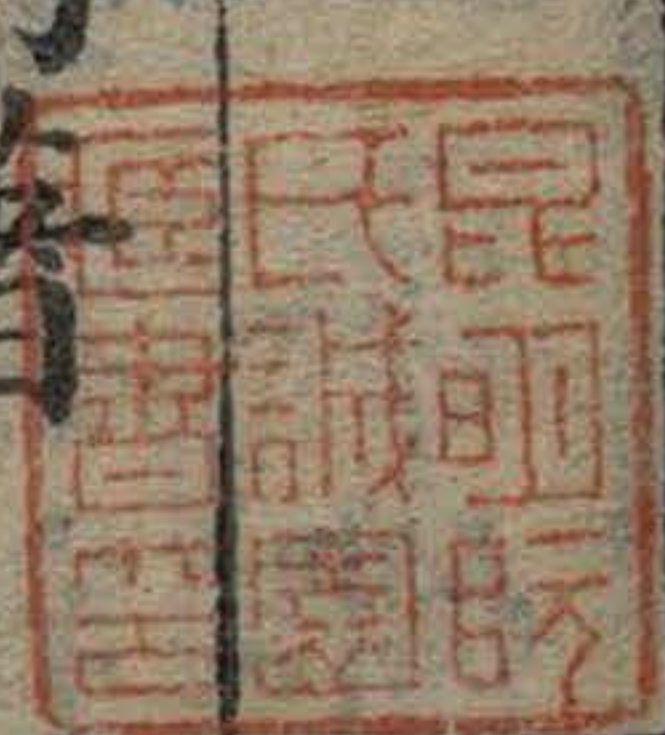 昆明阮
氏誠園
圖書